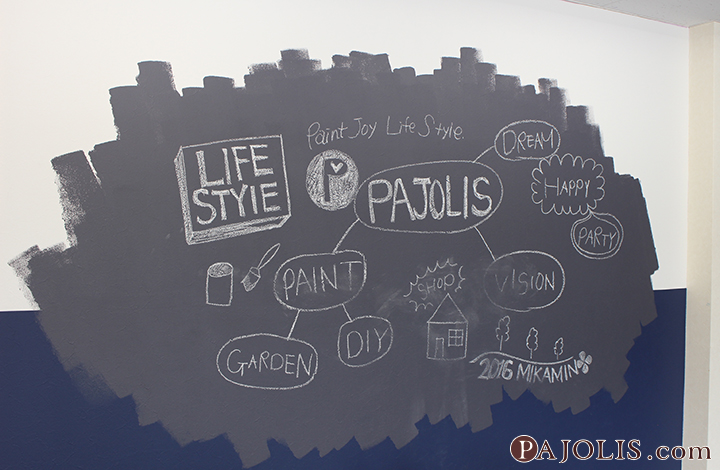 Paint Joy Life Style.
LIFE
STYlE
P
PAJOLIS
DREAM
HAPPY
PARTY
PAINT
SHOP
VISION
GARDEN
DIY
2016 MIKAMINO
PAJOLIS.com